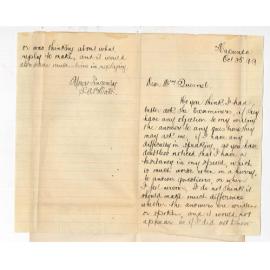 or was thinking about what
reply to make, and it would
also take much time in replying.
Yours sincerely
Oct 25 99
Dear Mrs
Do you think I had
better ask the Examiners if they
have any objection to my writing
the answer to any questions they
may ask me, if I have any
difficulty in speaking, as you have
doubtless noticed that I have a
hesitancy in my speech, which
is much worse when in a hurry,
to answer questions, or when
I feel nervous. I do not think it
should make much difference
whether the answers are written
or spoken, and it would not
appear as if I did not know